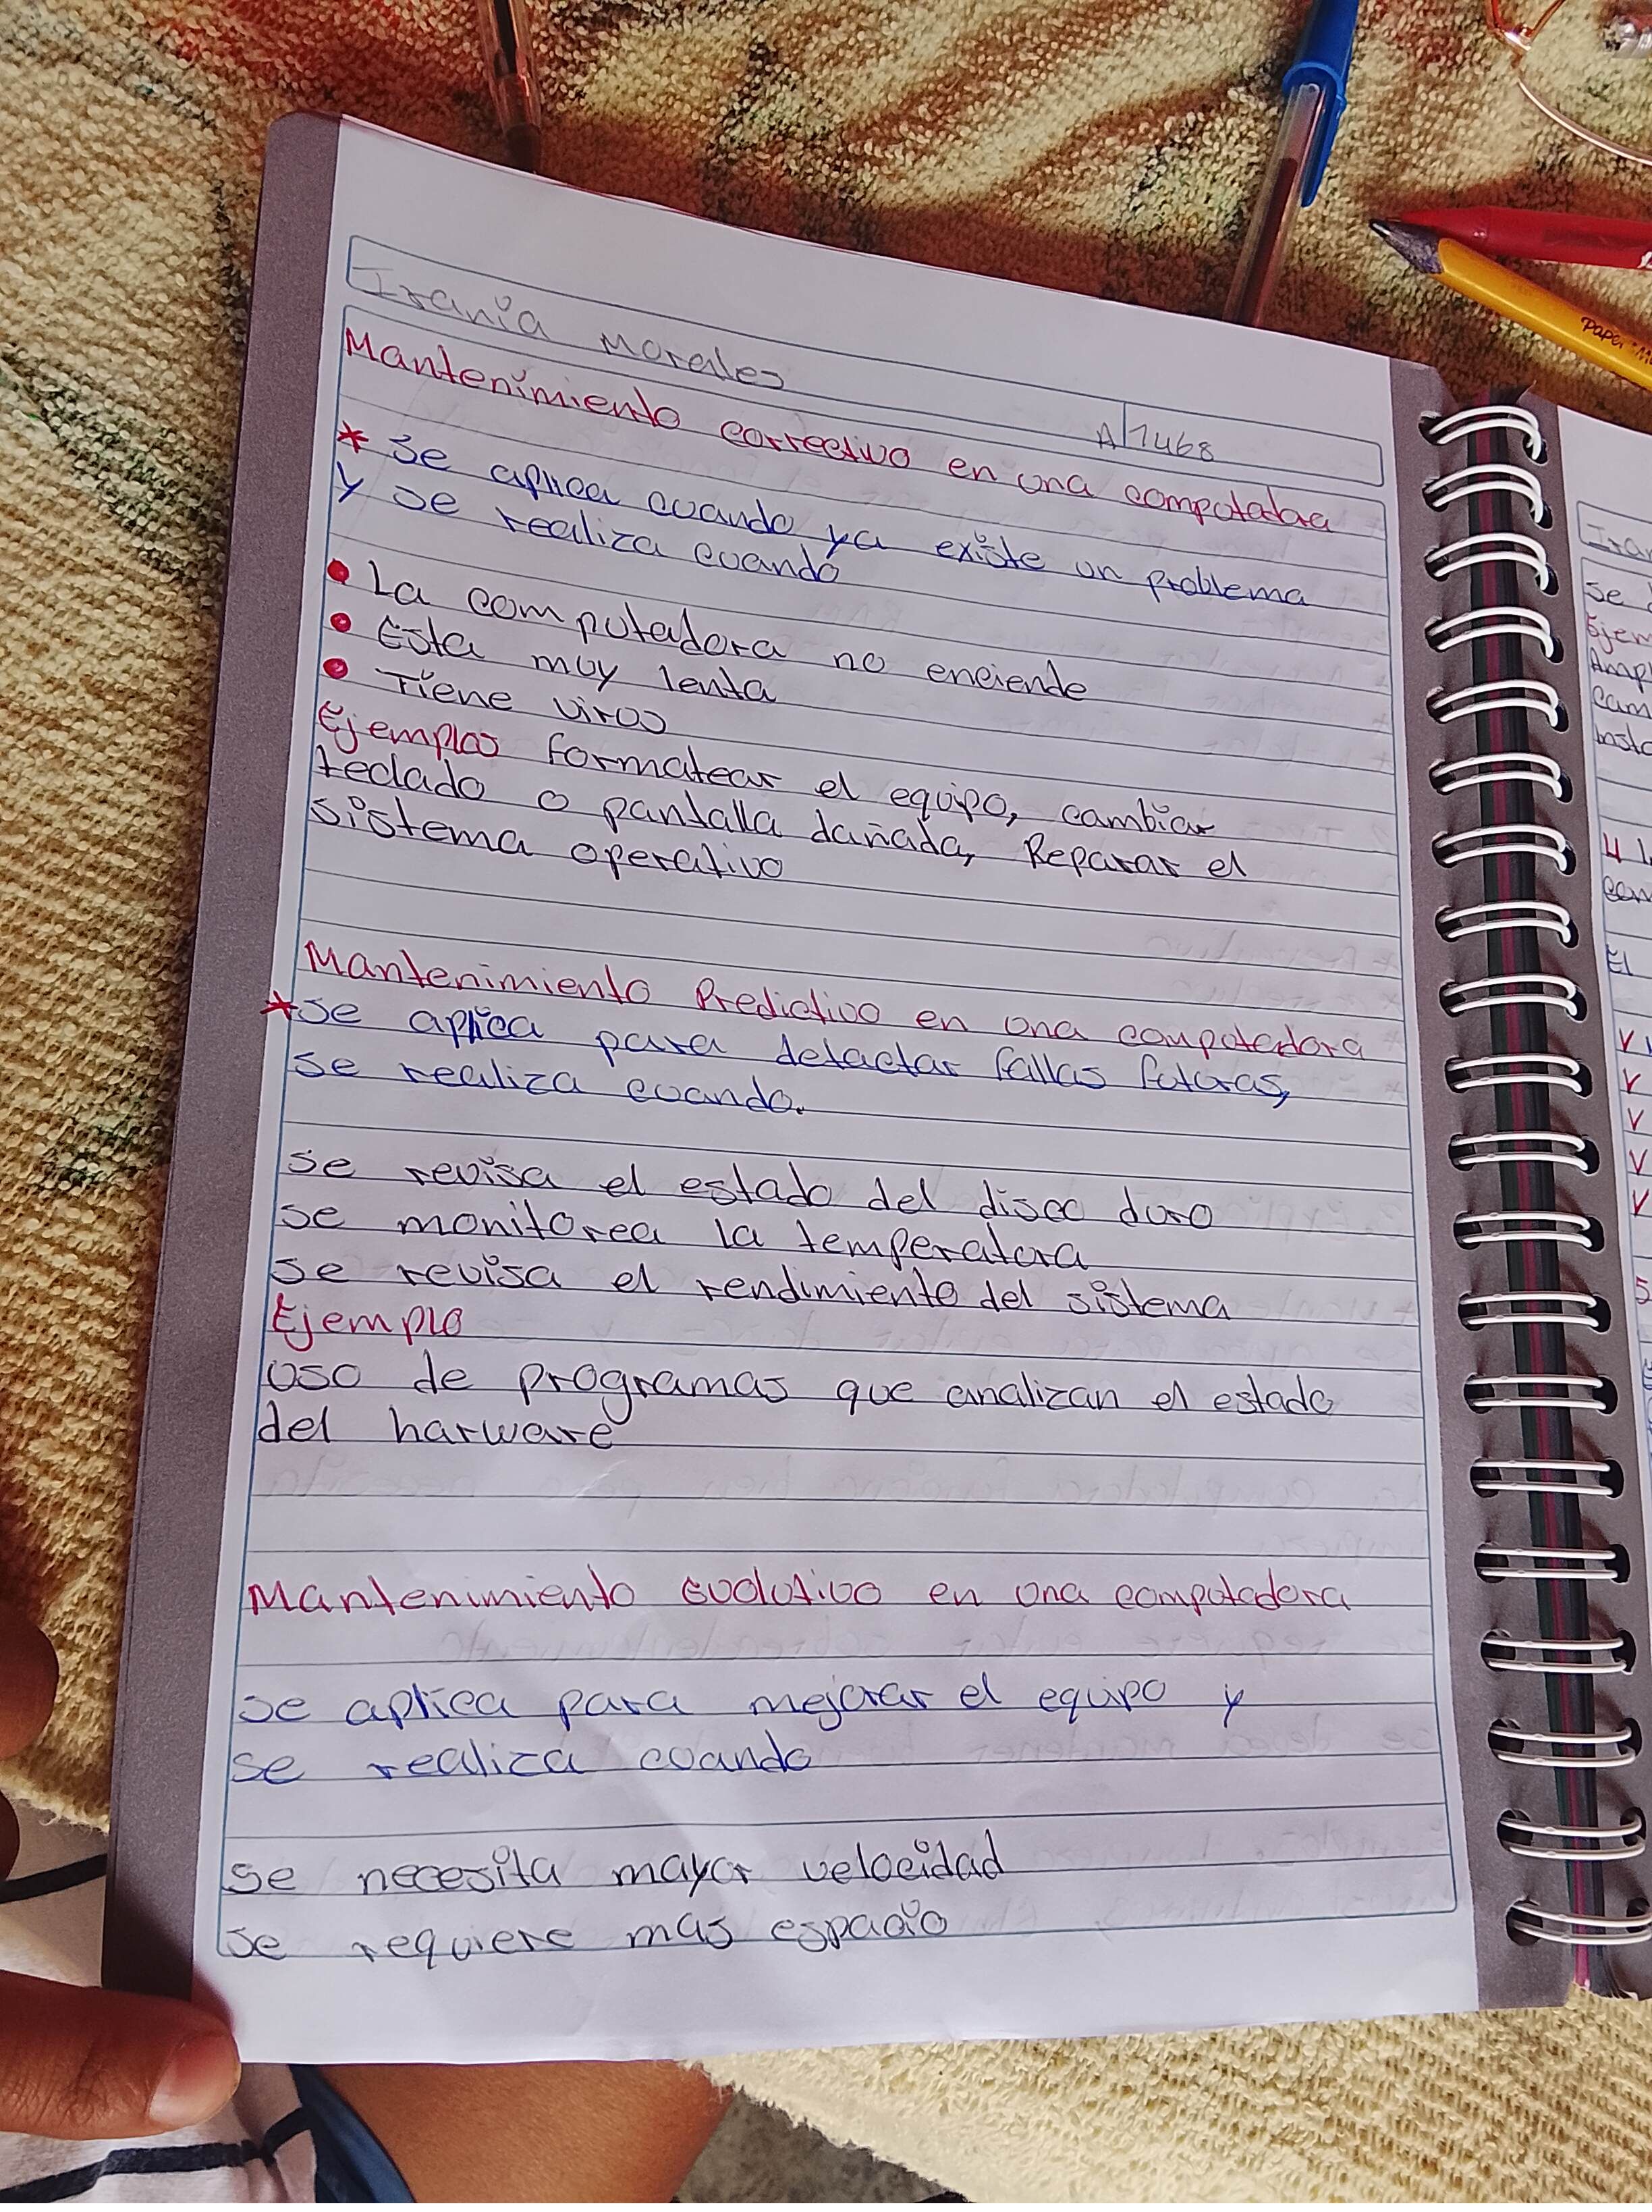 Irania Morales
A 1468
Mantenimiento correctivo en una computadora
* Se aplica cuando ya existe un problema
y se realiza cuando
• La computadora no enciende
• Esta muy lenta
• Tiene virus
Ejemplos formatear el equipo, cambiar
teclado o pantalla dañada, Reparar el
sistema operativo
Mantenimiento Predictivo en una computadora
* se aplica para detactar fallas futuras,
se realiza cuando.
se revisa el estado del disco duro
se monitorea la temperatura
se revisa el rendimiento del sistema
Ejemplo
uso de programas que analizan el estado
del harware
Mantenimiento evolutivo en una computadora
se aplica para mejorar el equipo y
se realiza cuando
se necesita mayor velocidad
se requiere mas espacio